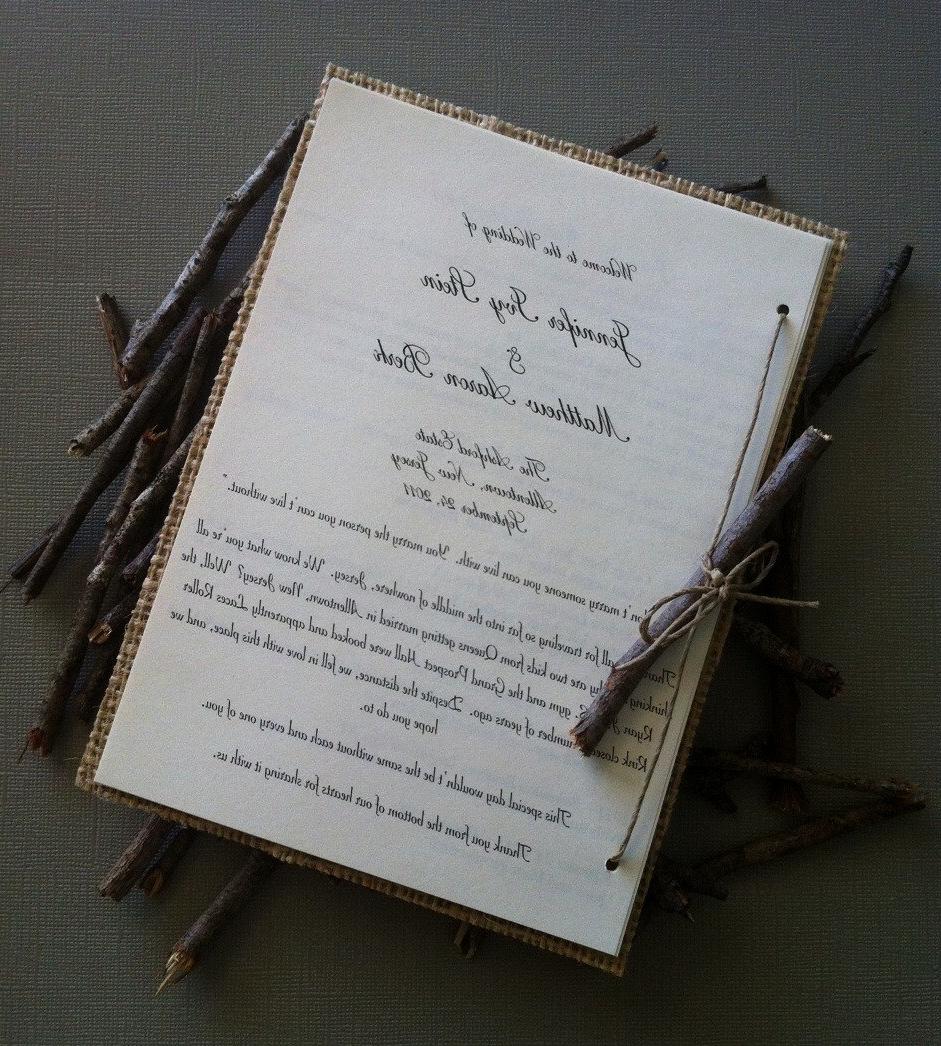 Welcome to the Wedding of
Jennifer Ivy Stein
&
Matthew Aaron Berk
The Ashford Estate
Allentown, New Jersey
September 24, 2011
marry someone you can live with. You marry the person you can't live without."
all for traveling so far into the middle of nowhere, Jersey. We know what you're all
thinking are two kids from Queens getting married in Allentown, New Jersey? Well, the
Ryan gym and the Grand Prospect Hall were booked and apparently Laces Roller
Rink closed number of years ago. Despite the distance, we fell in love with this place, and we
hope you do to.
This special day wouldn't be the same without each and every one of you.
Thank you from the bottom of our hearts for sharing it with us.